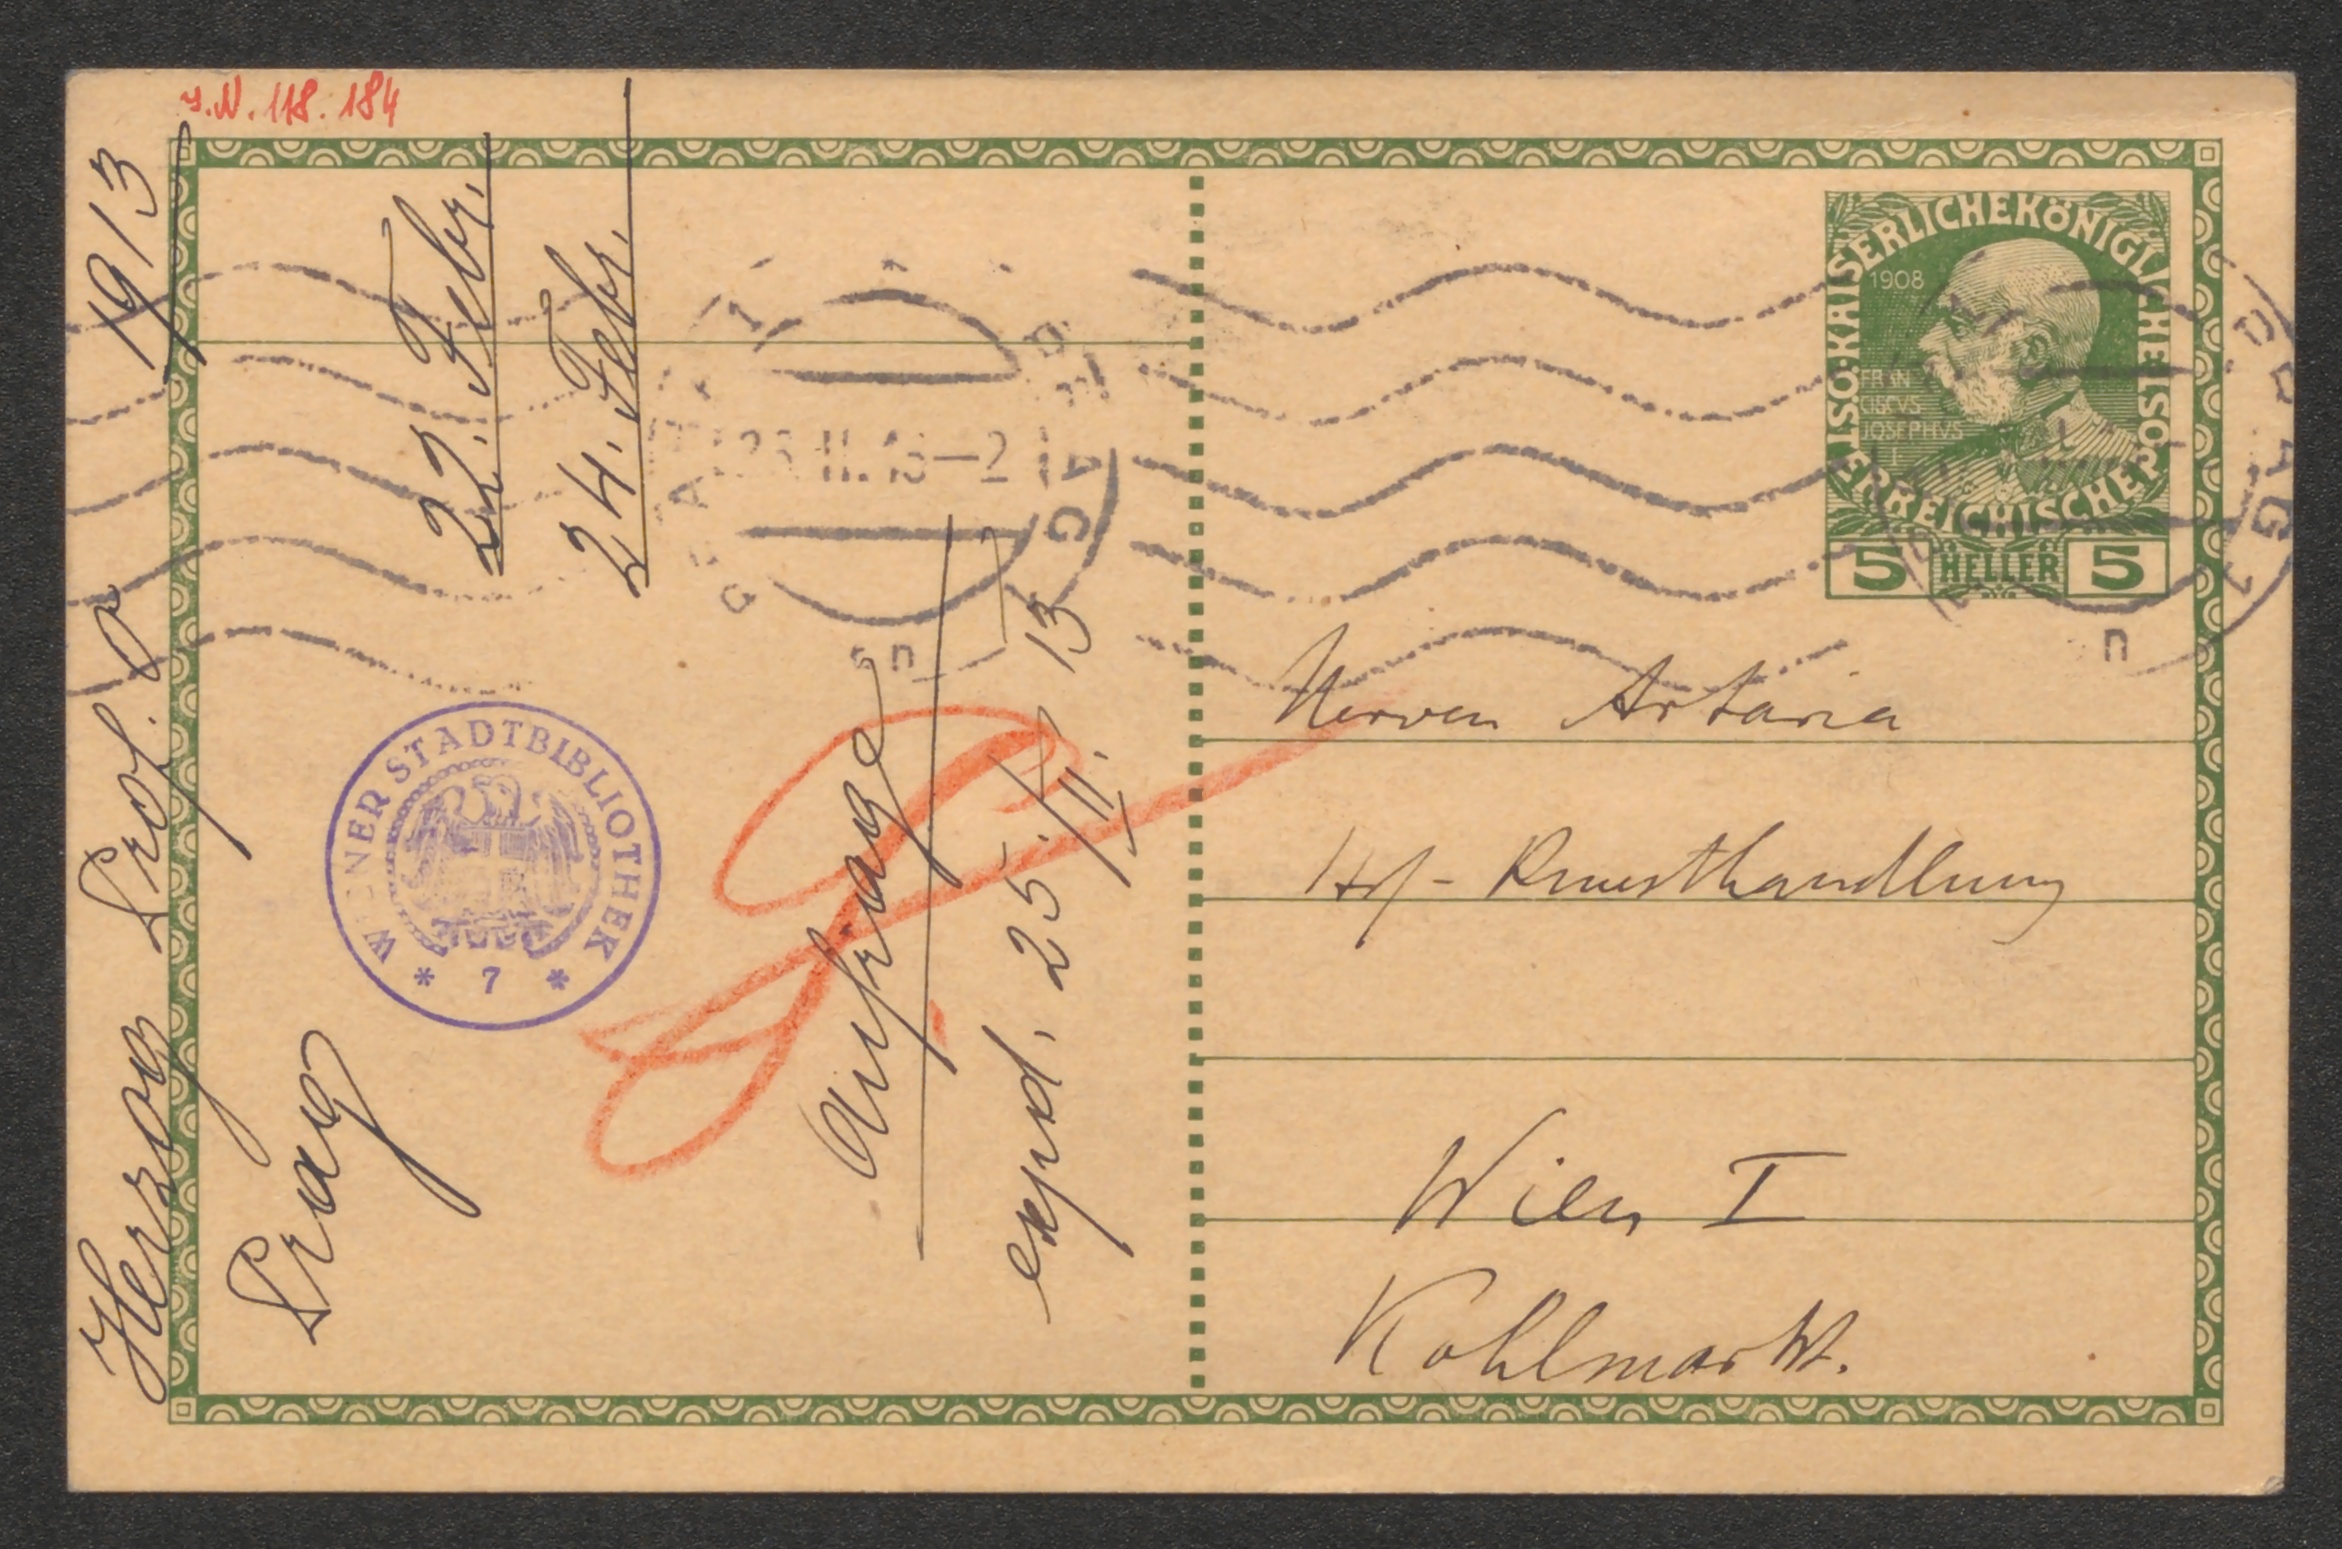 J.N. 118.184
1913
Herzog Prof. O
Prag
22. Febr.
24. Febr.
Anfrage
expd. 25./II. 13
WIENER STADTBIBLIOTHEK
* 7 *
PRAG 1
23.II.13–2
n
KAISERLICHE KÖNIGLICHE ÖSTERREICHISCHE POST
1908
FRANCISCVS
JOSEPHVS
I
5 HELLER 5
PRAG 1
n
Herren Artaria
Hof-Kunsthandlung
Wien I
Kohlmarkt.